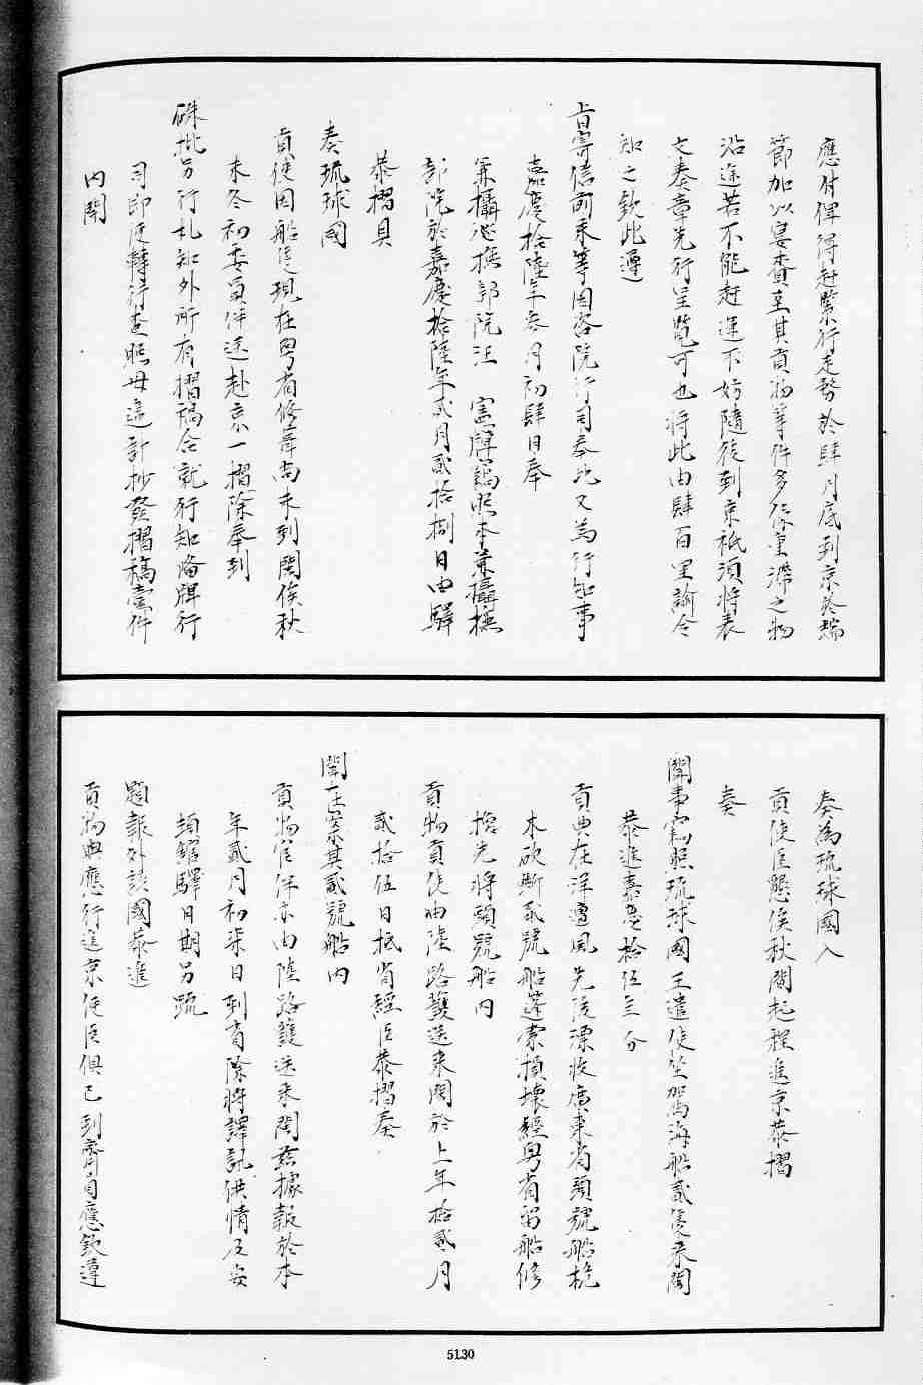 應付俾得赶緊行走務於肆月底到京於端
節加以宴賚至其貢物等件多係重滯之物
沿途若不能赶運不妨隨後到京祇須將表
文奏章先行呈覽可也將此由肆百里諭令
知之欽此遵
旨寄信前來等因咨院行司奉此又為行知事
嘉慶拾陸年叁月初肆日奉
兼攝巡撫部院汪 憲牌竊照本兼攝撫
部院於嘉慶拾陸年貳月貳拾捌日由驛
恭摺具
奏琉球國
貢使因船隻現在粵省修葺尚未到閩俟秋
末冬初委員伴送赴京一摺除奉到
硃批另行札知外所有摺稿合就行知備牌行
司即便轉行查照毋違計抄發摺稿壹件
內開
奏為琉球國入
貢使臣懇俟秋間起程進京恭摺
奏
聞事竊照琉球國王遣使坐駕海船貳隻來閩
恭進嘉慶拾伍年分
貢典在洋遭風先後漂收廣東省頭號船桅
木砍斷貳號船蓬索損壞經粵省留船修
捨先將頭號船內
貢物貢使由陸路護送來閩於上年拾貳月
貳拾伍日抵省經臣恭摺奏
聞在案其貳號船內
貢物官伴亦由陸路護送來閩茲據報於本
年貳月初柒日到省除將譯訊供情及安
頓館驛日期另疏
題報外該國恭進
貢物與應行進京使臣俱已到齊自應欽遵
5130